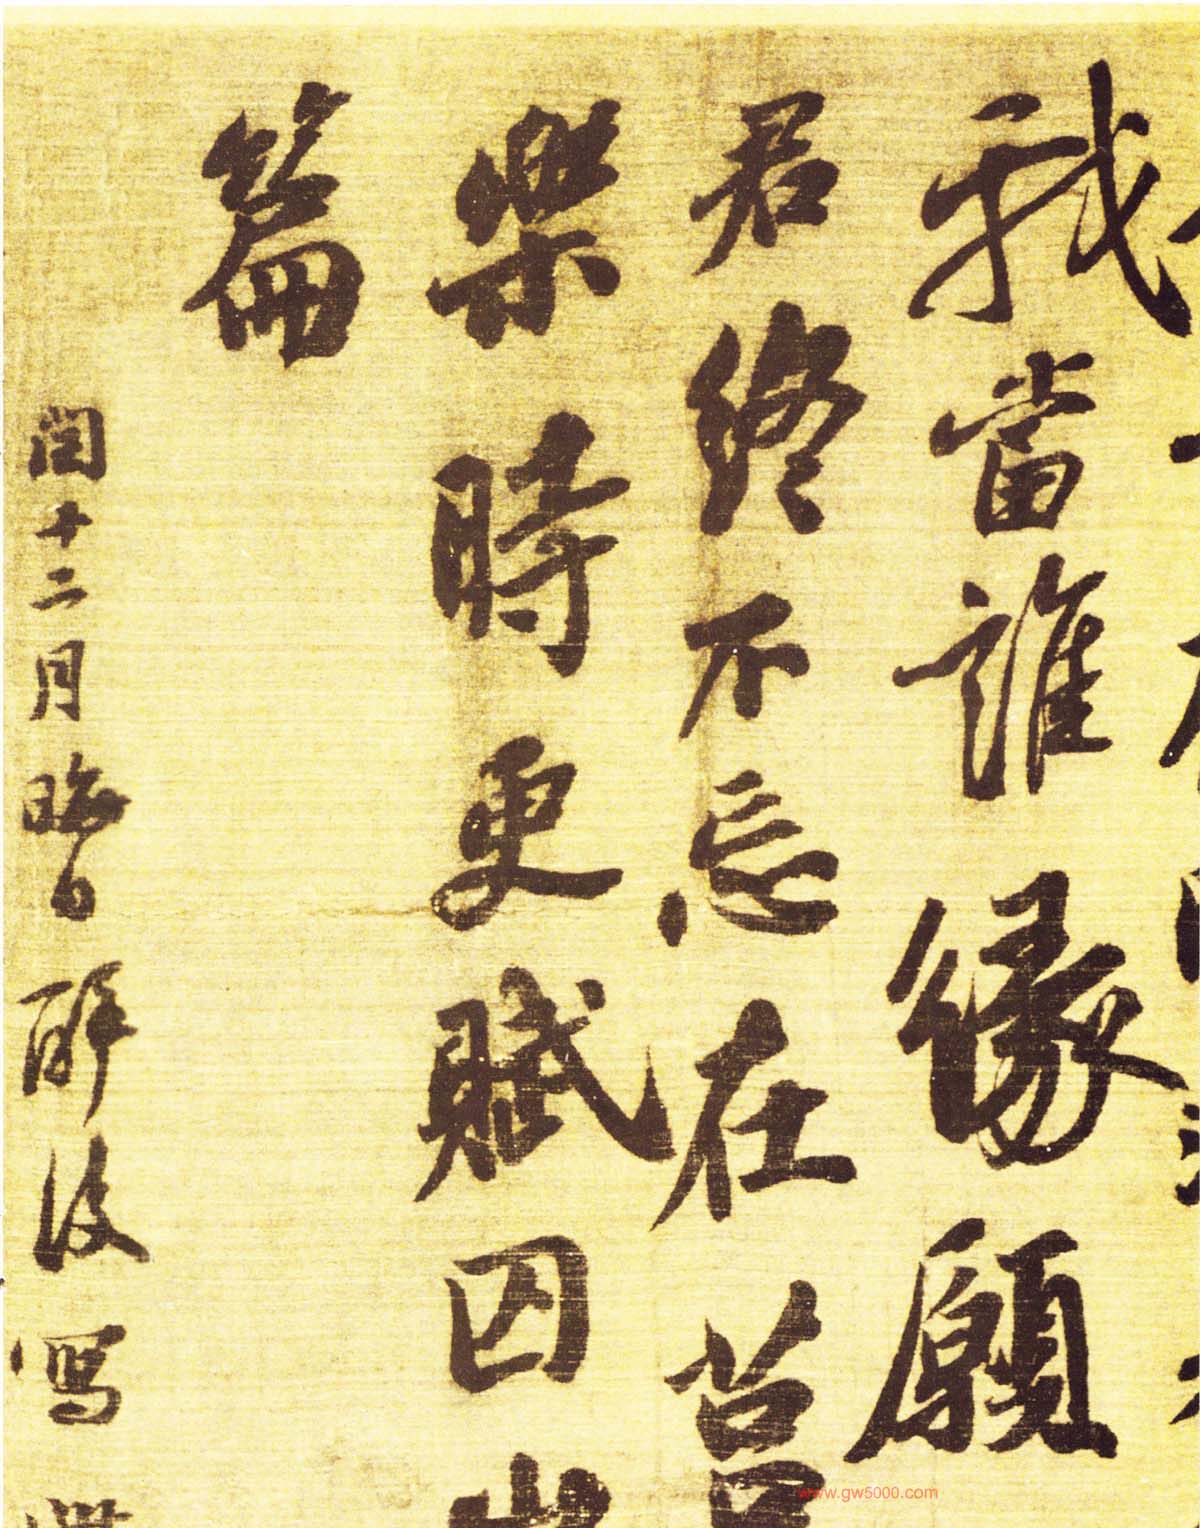 我當誰緣願
君終不忘在莒
樂時更賦囚山
篇
閏十二月晦日醉後寫
www.gw5000.com